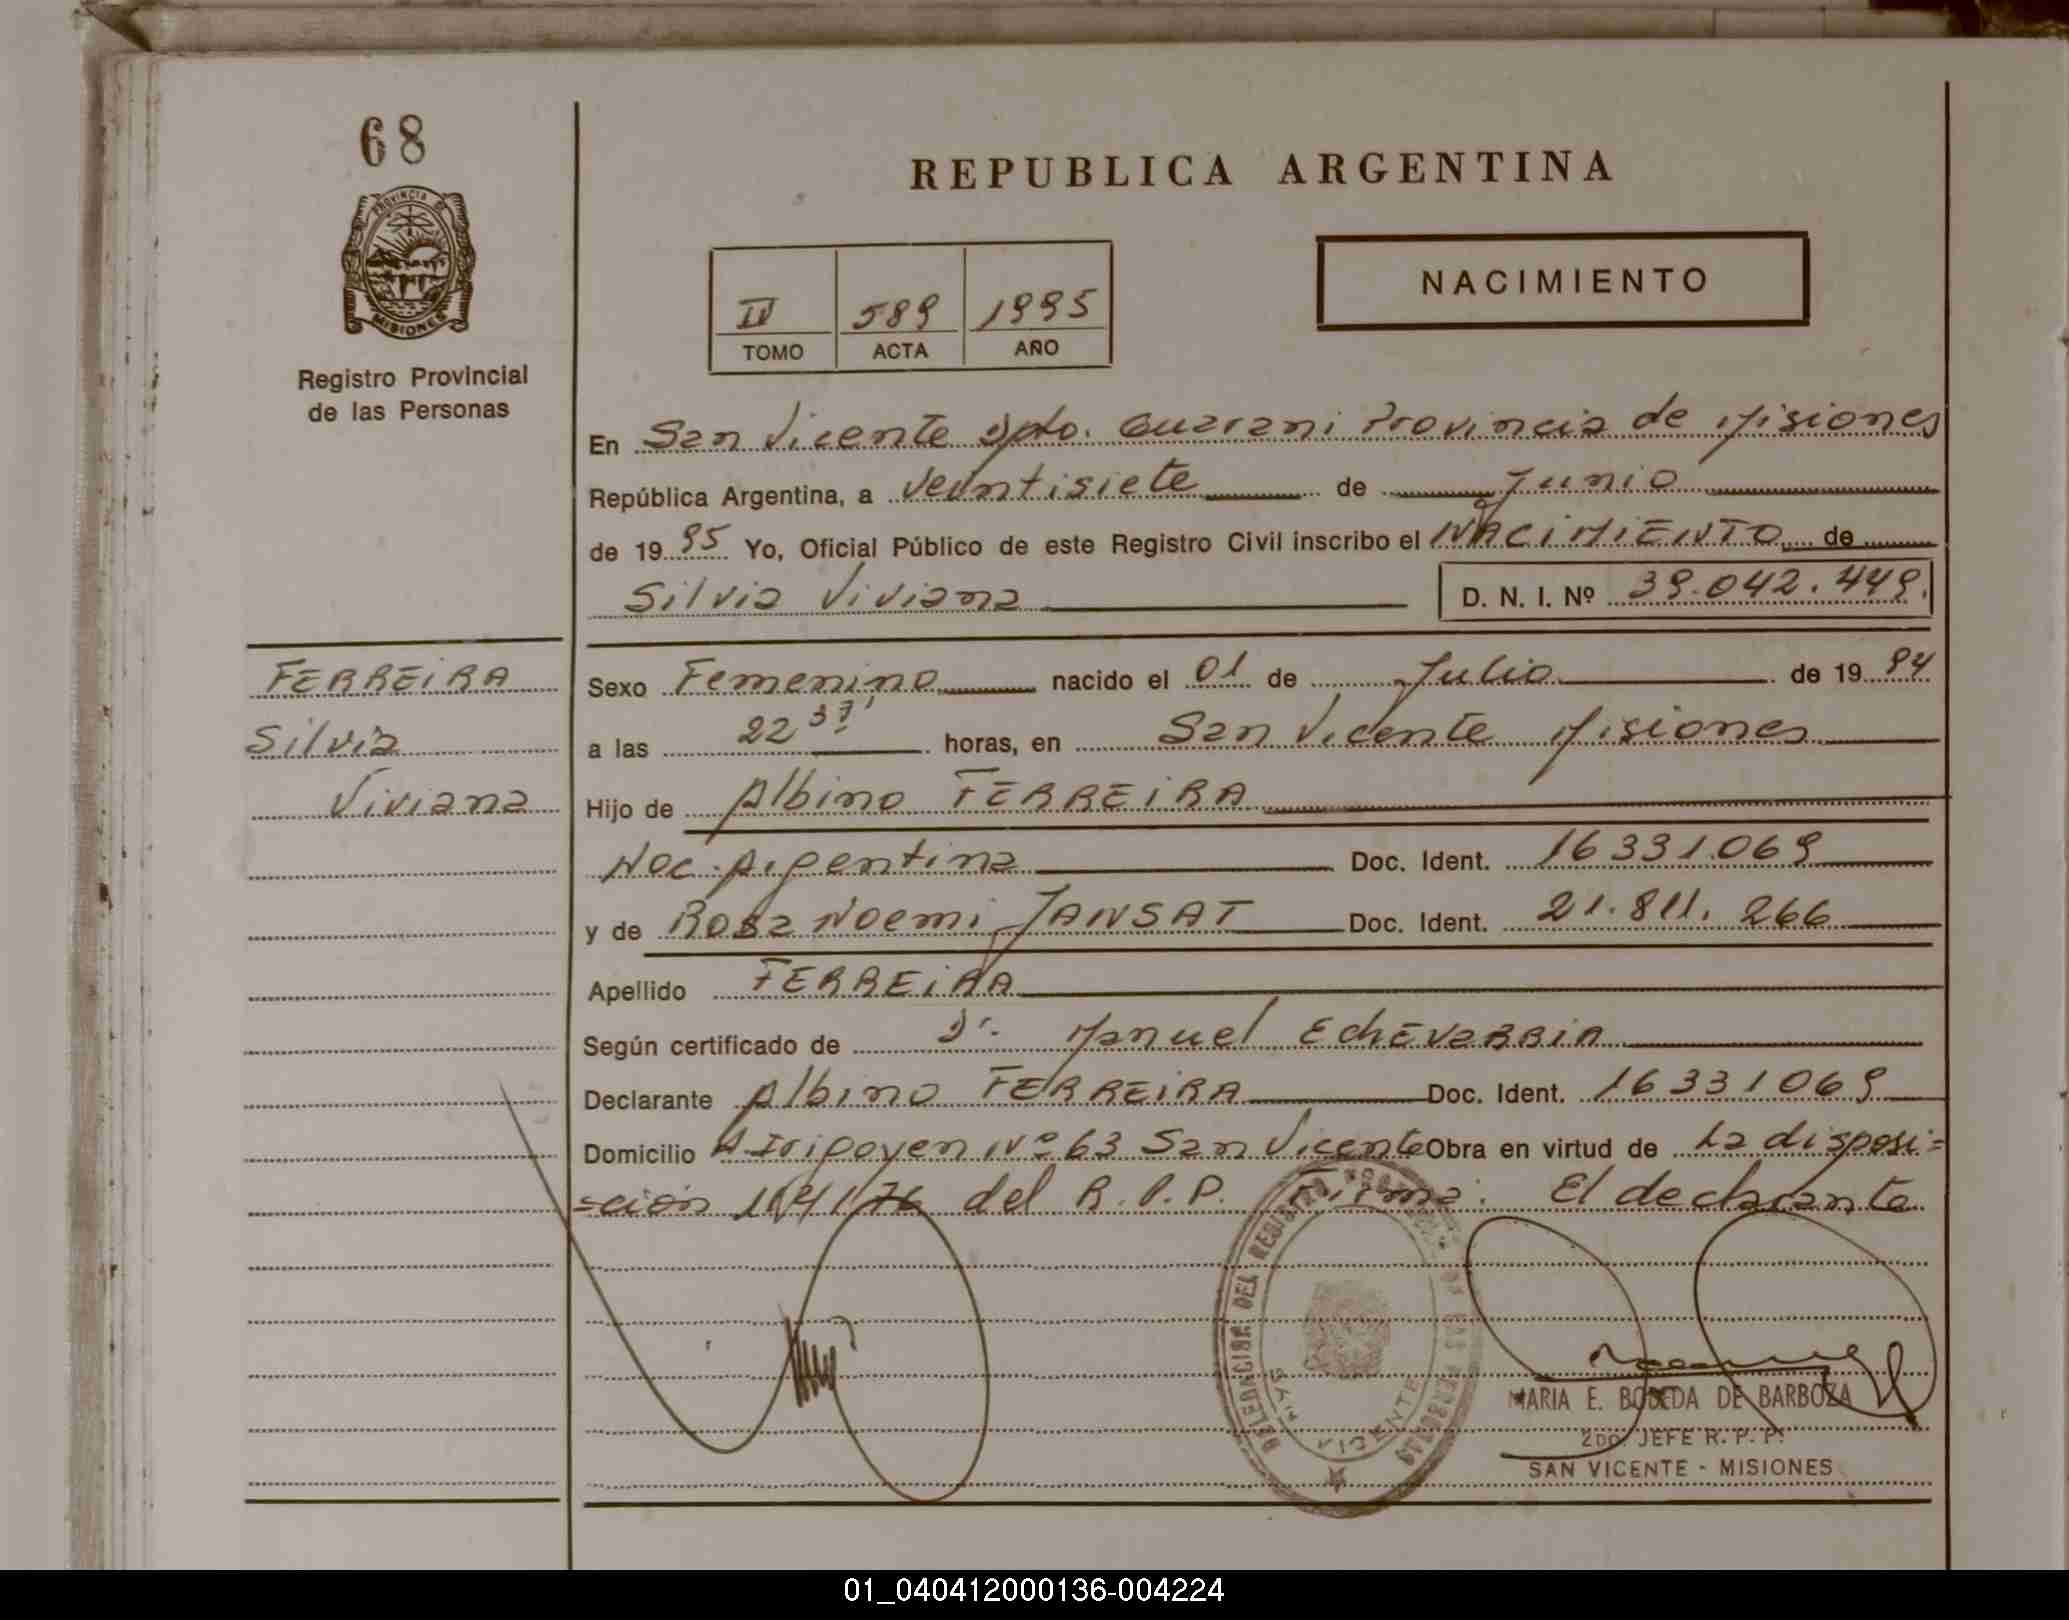 68
PROVINCIA DE
MISIONES
Registro Provincial
de las Personas
REPUBLICA ARGENTINA
NACIMIENTO
IV 589 1995
TOMO ACTA AÑO
En San Vicente Dpto. Guarani Provincia de Misiones
República Argentina, a Veintisiete de Junio
de 1995 Yo, Oficial Público de este Registro Civil inscribo el NACIMIENTO de
Silvia Viviana D. N. I. Nº 39.042.449.
FERREIRA
Silvia
Viviana
Sexo Femenino nacido el 01 de Julio de 1994
a las 22 37' horas, en San Vicente Misiones
Hijo de Albino FERREIRA
Nac. Argentina Doc. Ident. 16331.069
y de Rosa Noemi JANSAT Doc. Ident. 21.811.266
Apellido FERREIRA
Según certificado de Dr. Manuel EchEVaRRiA
Declarante Albino FERREIRA Doc. Ident. 16331069
Domicilio H. Iripoyen Nº 63 San Vicente Obra en virtud de La disposi=
=ción del R.P.P. Firma: El declarante
DELEGACION DEL REGISTRO PROVINCIAL DE LAS PERSONAS
SAN VICENTE
MARIA E. BOBEDA DE BARBOZA
2DO. JEFE R. P. P.
SAN VICENTE - MISIONES
01_040412000136-004224